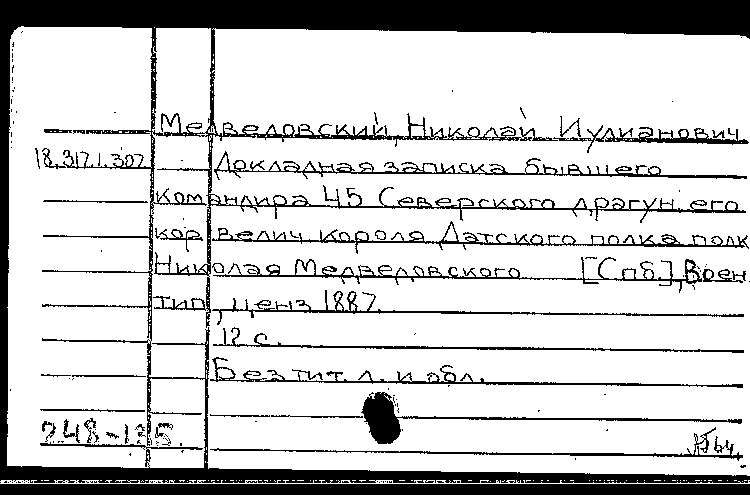 Медведовский, Николай Иулианович
18.317.1.307 Докладная записка бывшего
командира 45 Северского драгун. его
кор велич короля Датского полка полк
Николая Медведовского [Спб.], Воен
тип, ценз 1887.
12 с.
Без тит. л. и обл.
248-135.